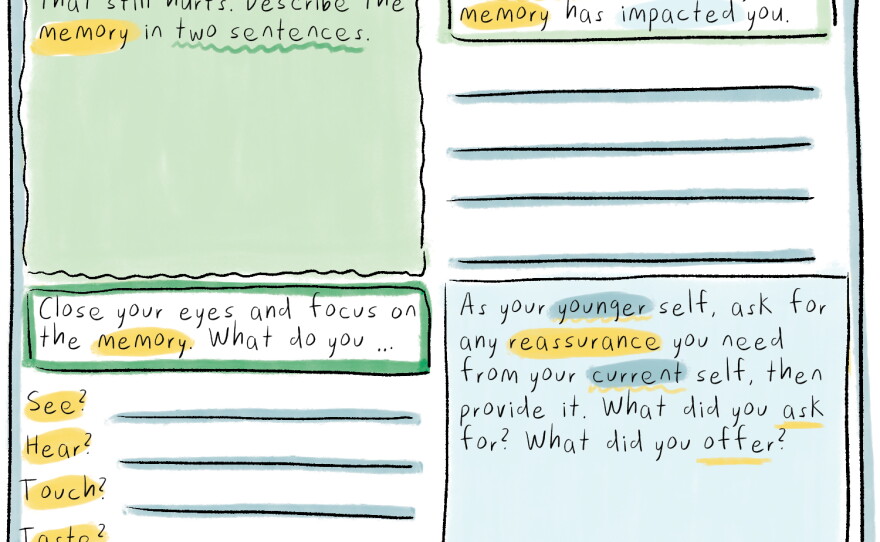 that still hurts. Describe the
memory in two sentences.
Close your eyes and focus on
the memory. What do you ...
See?
Hear?
Touch?
Taste?
memory has impacted you.
As your younger self, ask for
any reassurance you need
from your current self, then
provide it. What did you ask
for? What did you offer?